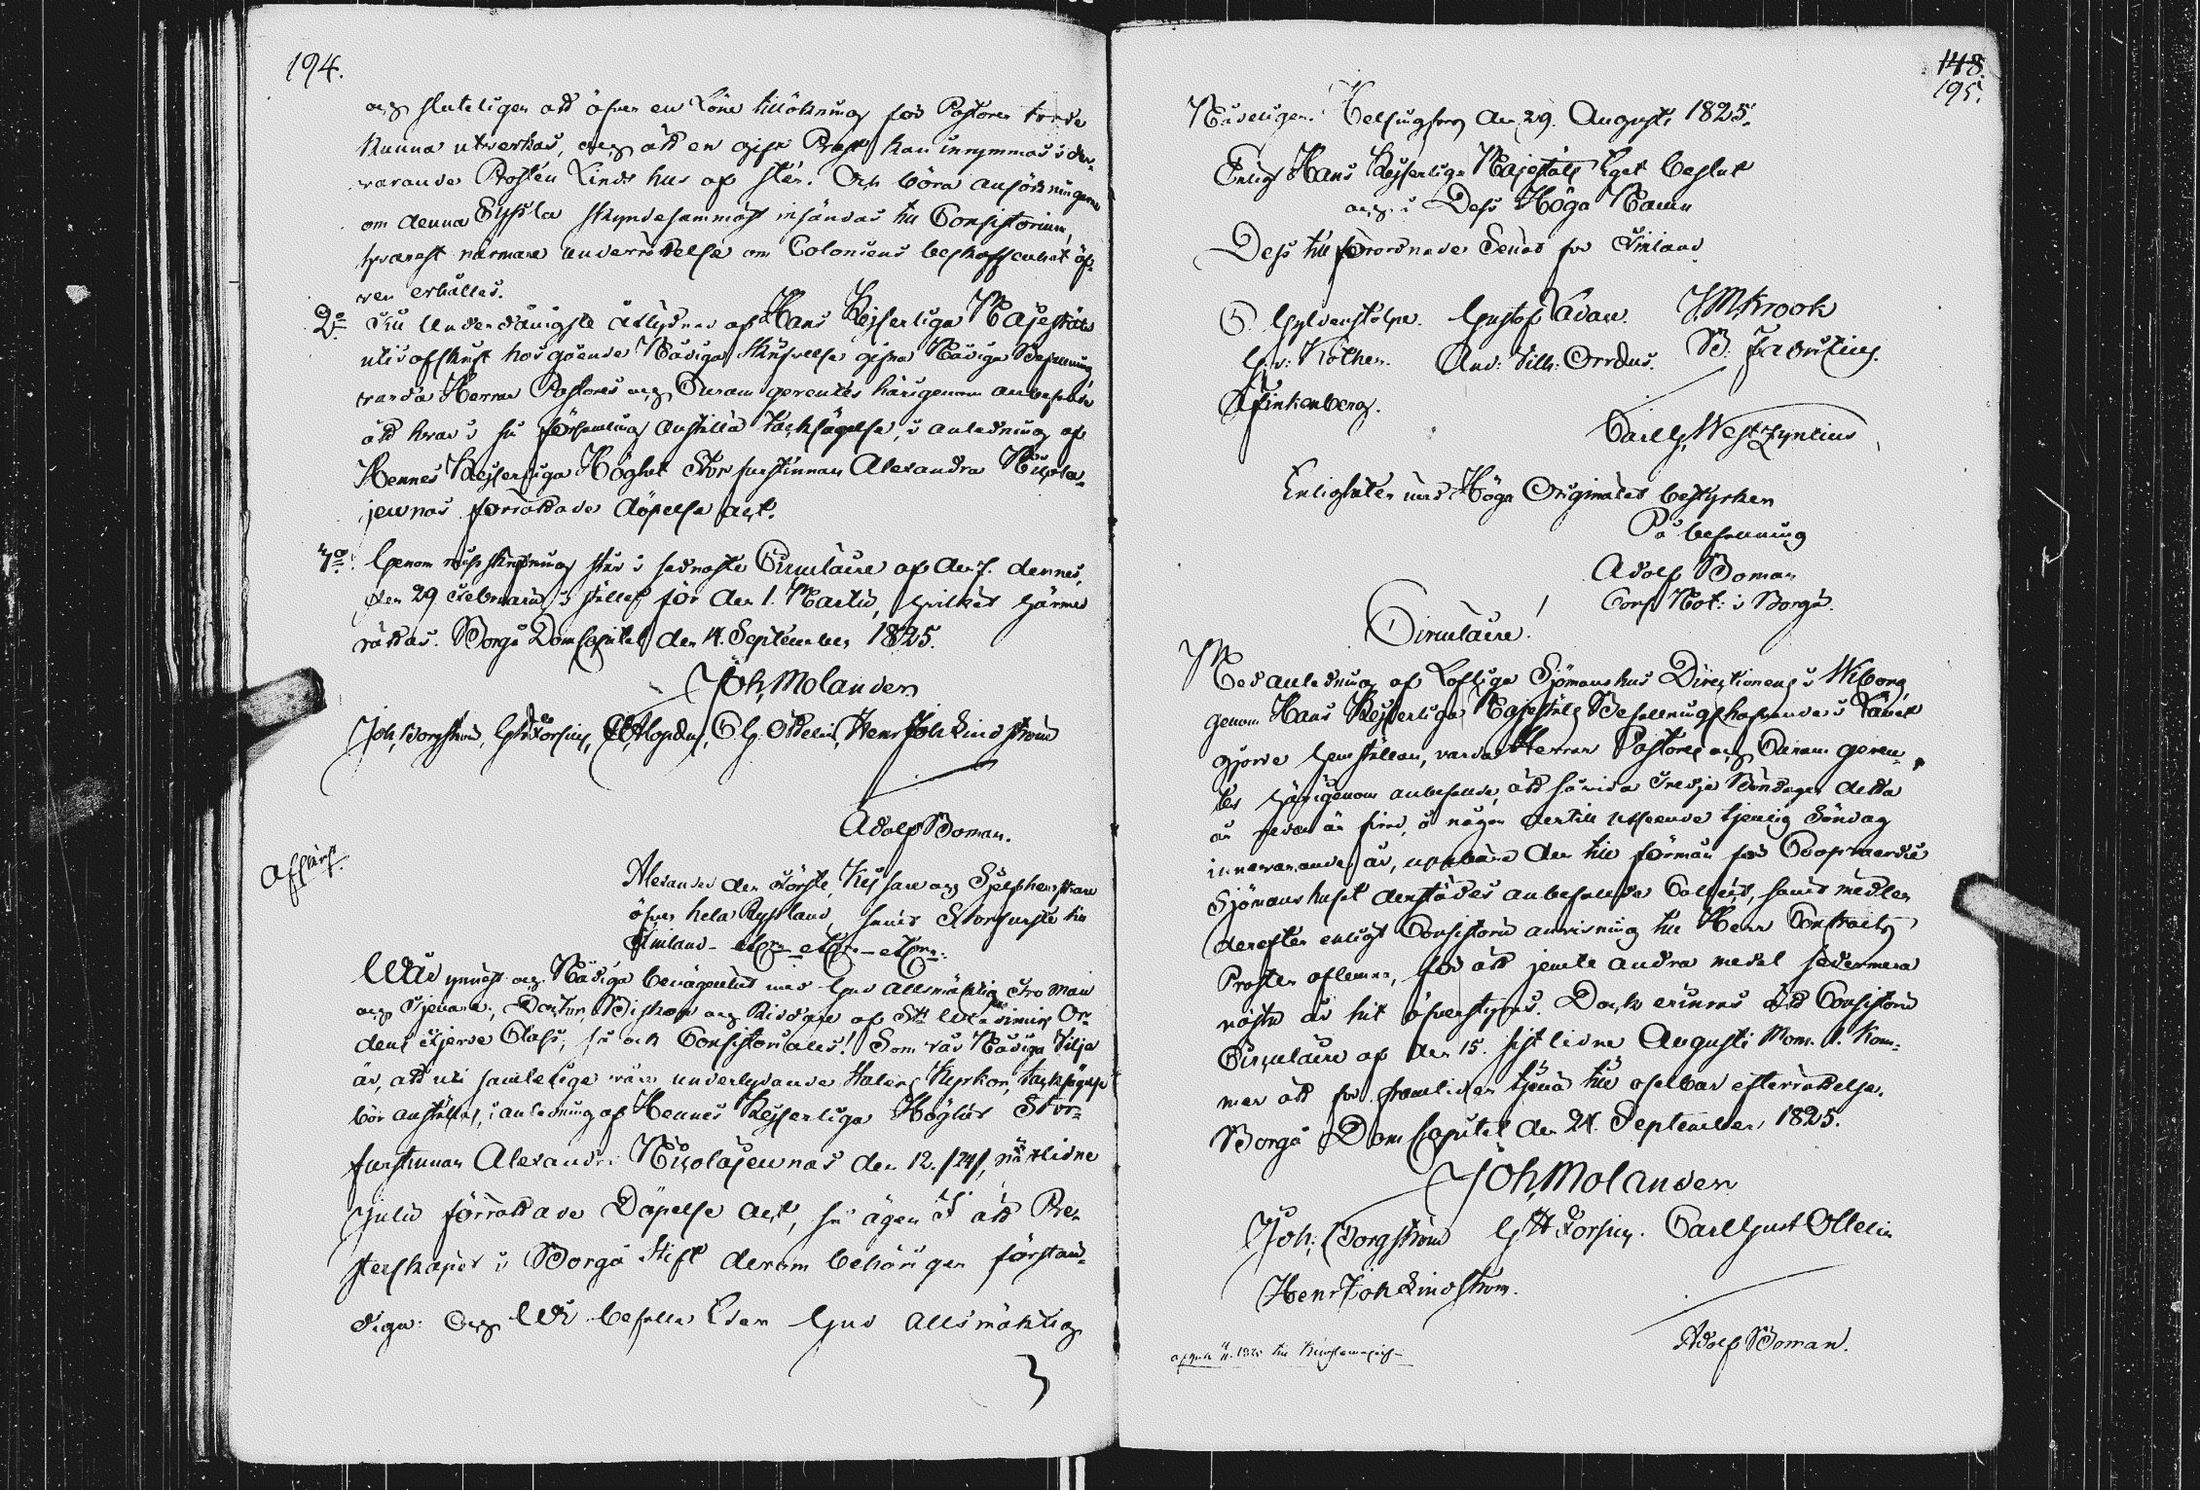 194.
och sluteligen att öfver en Löne tillökning för Pastoren torde
kunna utverkas, och att en gift Prest kan inrymmas i der-
varande Prosten Linds hus af sten. Och böra ansökningar
om denna Syssla skyndesammast insändas till Consistorium,
hvarest närmare underrättelse om Coloniens beskaffenhet äf-
ven erhålles.
2o Till Underdånigste åtlydnad af Hans Kejserliga Majestäts
uti afskrift hosgående Nådiga Skrifvelse gifna Nådiga Befallning
varda Herrar Pastores och Curam gerentes härigenom anbefalde
att hvar i sin församling anställa tacksägelse, i anledning af
Hennes Kejserliga Höghet Storfurstinnan Alexandra Nicola-
jewnas förrättade döpelse act.
Genom misskrifning står i sednaste Circulaire af den 7. dennes,
den 29 Februarii i stället för den 1. Martii, hvilket härmed
rättas. Borgå DomCapitel den 14. September 1825.
Joh. Molander
Joh. Borgström, G. H. Forsius, C. G. Ottelin, Henr. Joh. Lindström
Adolf Boman.
Afskrift.
Alexander den Förste, Kejsare och Sjelfherrskare
öfver hela Ryssland, samt Storfurste till
Finland – etc. – etc. – etc.
Wår ynnest och Nådiga benägenhet med Gud Allsmäktig, Tro Man
och Tjenare, Doctor, Biskop och Riddare af St. Wladimirs Or-
dens tredje Class, så ock Consistoriales! Som vår Nådiga Vilja
är, att uti samtelige våra underlydande Staters Kyrkor, tacksägelse
bör anställas, i anledning af Hennes Kejserliga Höghet Stor-
furstinnan Alexandra Nicolajewnas den 12./24/, nästlidne
Julii förrättade Döpelse Act, så ägen I att Pre-
sterskapet i Borgå Stift derom behörigen förstän-
diga. Och Wi befalle Eder Gud Allsmäktig
148.
195.
Nådeligen. Helsingfors den 29. Augusti 1825.
Enligt Hans Kejserliga Majestäts Eget beslut
och i Dess Höga Namn
Dess tillförordnade Senat för Finland.
C. Gyldenstolpe. Gustaf Ladau. J. M. Krook
G. v. Kothen. And. Vilh. Orræus.
Finkenberg.
Carl G. Westzynthius
Enligheten med Höga Originalet bestyrker
På befallning
Adolf Boman
Cons. Not. i Borgå.
Circulaire!
Med anledning af Loflige Sjömanshus Directionens i Wiborg
genom Hans Kejserliga Majestäts Befallningshafvande i Länet
gjorde hemställan, varda Herrar Pastores och Curam geren-
tes härigenom anbefalde, att såvida tredje Böndagen detta
år redan är förbi, å någon dertill utseende tjenlig Söndag
innevarande år, uppbära den till förmån för Coopvaerdie
Sjömanshuset derstädes anbefallde Collect, samt medlen
derefter enligt Consistorii anvisning till Herr Contracts
Prosten aflemna, för att jemte andra medel sedermera
nästa år hit öfverstyras. Dock erinras att Consistorii
Circulaire af den 15. sistlidne Augusti Mom. 1. kom-
mer att för framtiden tjena till ofelbar efterrättelse.
Borgå DomCapitel den 21. September 1825.
Joh. Molander
Joh. Borgström G. H. Forsius. Carl Gust. Ottelin
Henr. Joh. Lindström.
Adolf Boman.